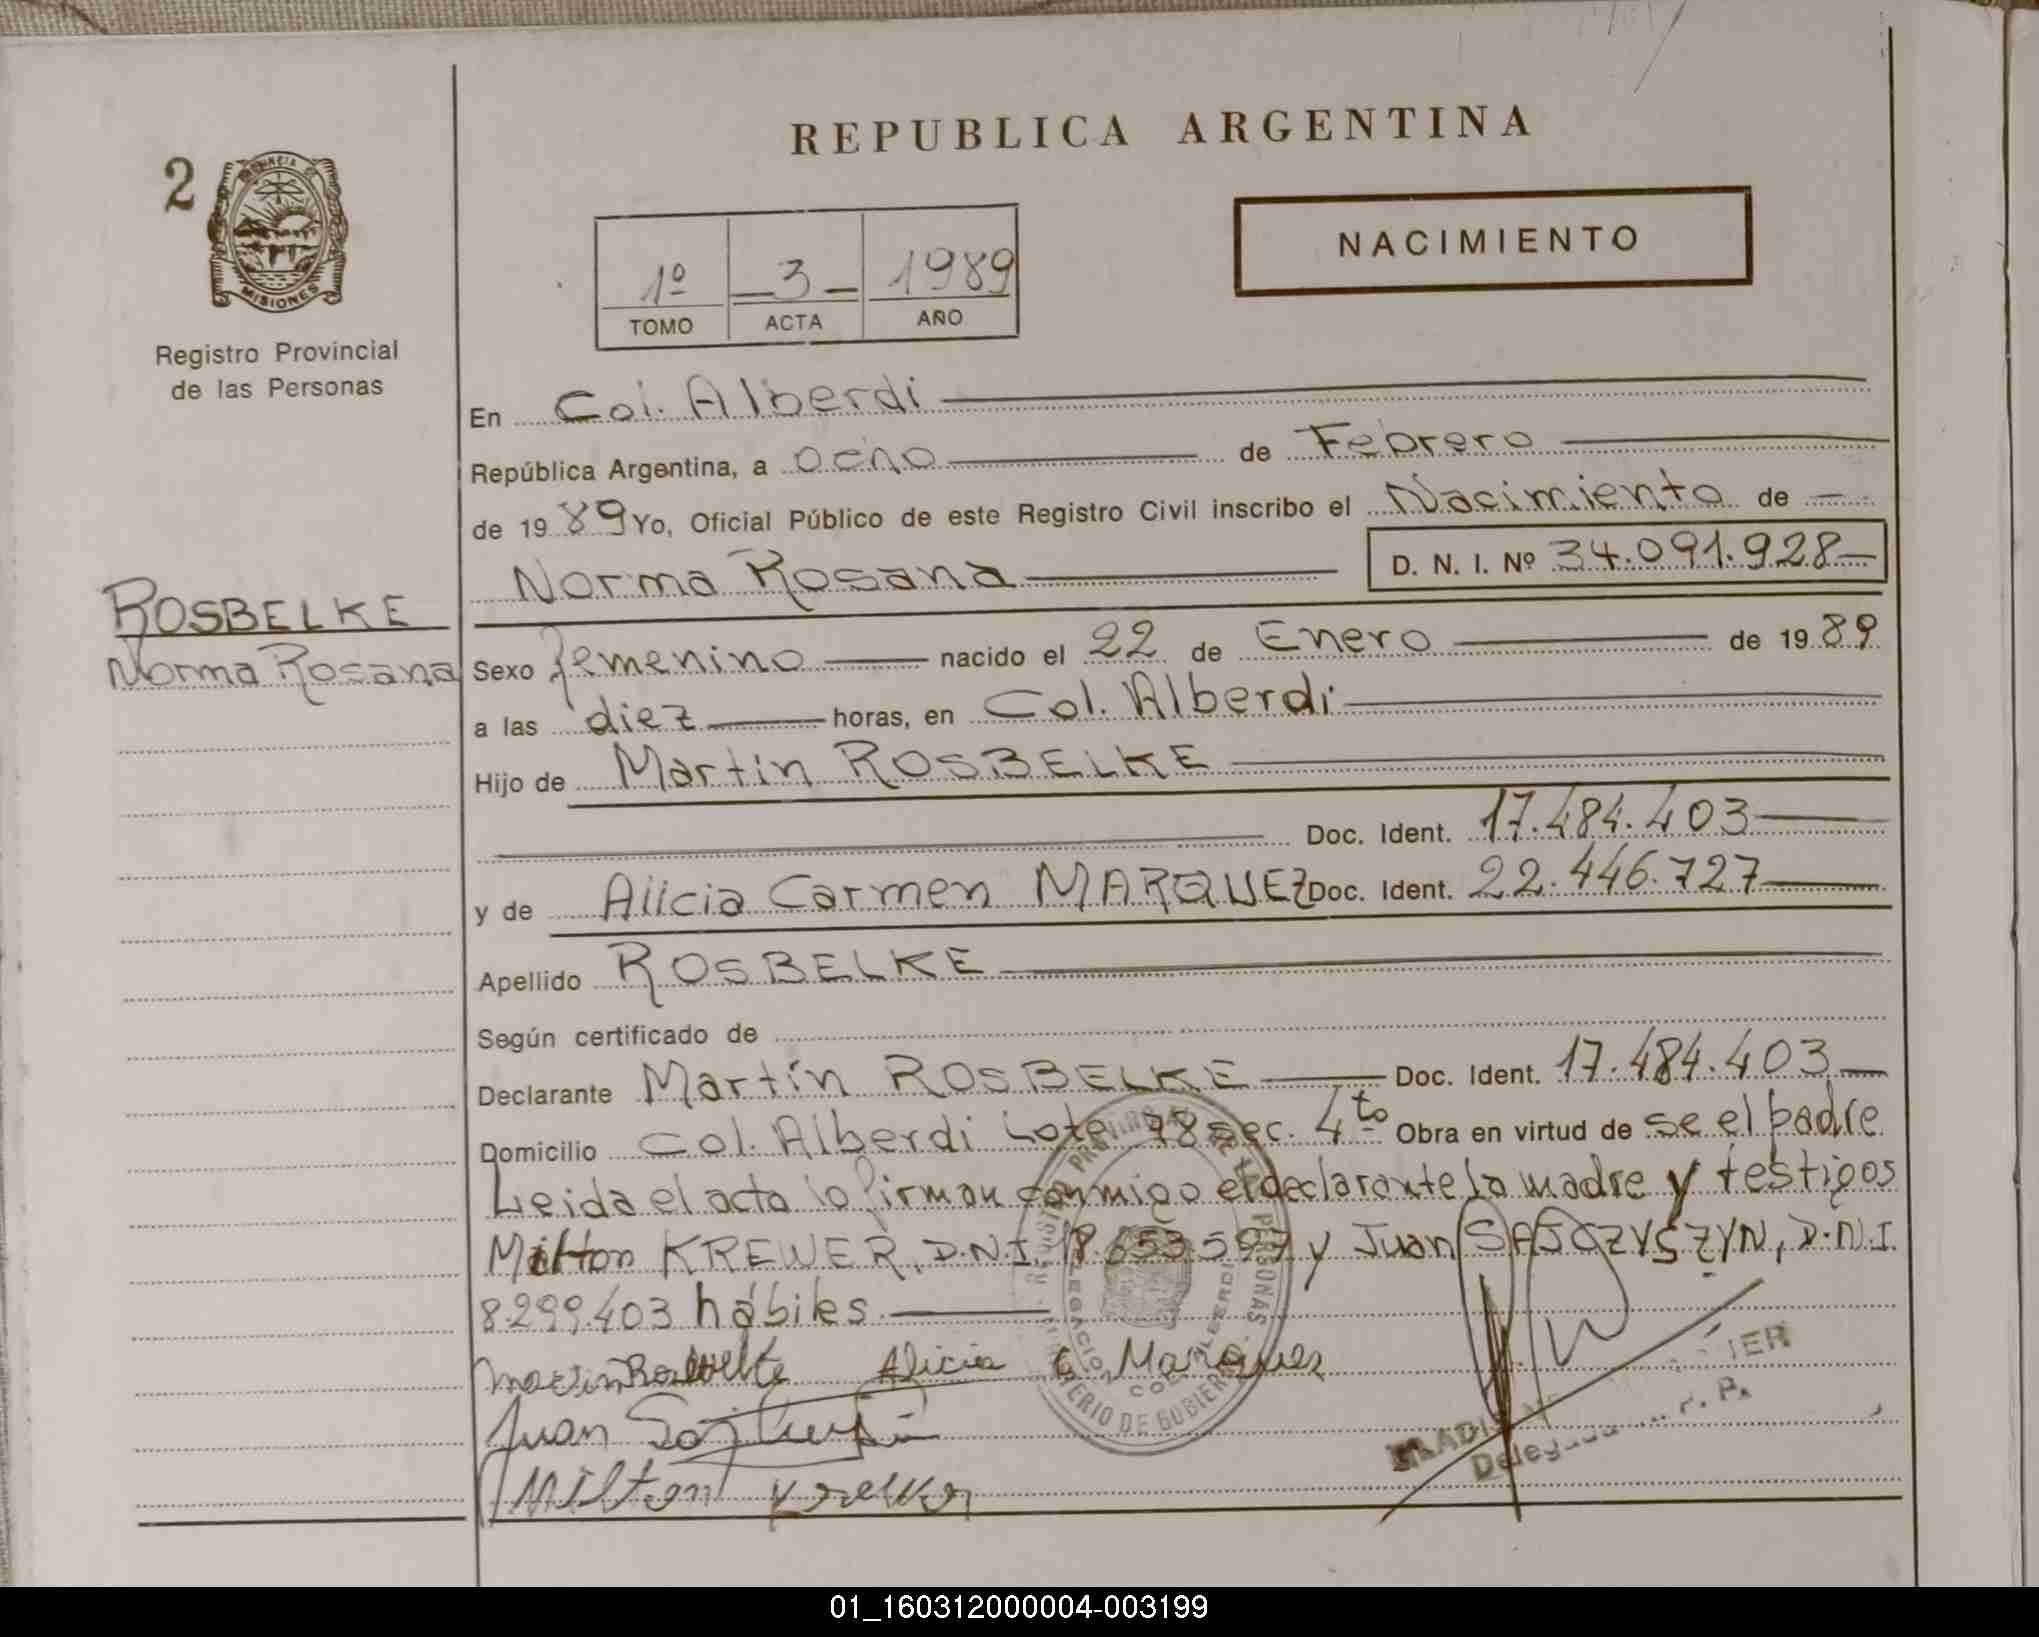 REPUBLICA ARGENTINA
2
PROVINCIA
MISIONES
Registro Provincial
de las Personas
NACIMIENTO
1º 3 1989
TOMO ACTA AÑO
En Col. Alberdi
República Argentina, a ocho de Febrero
de 1989 Yo, Oficial Público de este Registro Civil inscribo el Nacimiento de
Norma Rosana D. N. I. Nº 34.091.928
ROSBELKE
Norma Rosana
Sexo femenino nacido el 22 de Enero de 1989
a las diez horas, en Col. Alberdi
Hijo de Martín ROSBELKE
Doc. Ident. 17.484.403
y de Alicia Carmen MARQUEZ Doc. Ident. 22.446.727
Apellido ROSBELKE
Según certificado de
Declarante Martín ROSBELKE Doc. Ident. 17.484.403
Domicilio Col. Alberdi Lote 78 sec. 4to Obra en virtud de se el padre
Leida el acta lo firman conmigo el declarante la madre y testigos
Milton KREWER, D.N.I. y Juan D.N.I.
8.299.403 hábiles
Alicia C. Marquez
Juan
Milton Krewer
01_160312000004-003199